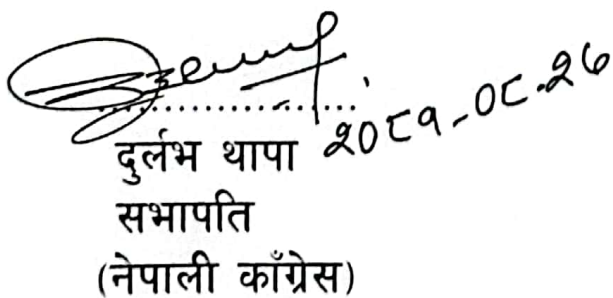 दुर्लभ थापा २०८१-०८-२७
सभापति
(नेपाली काँग्रेस)